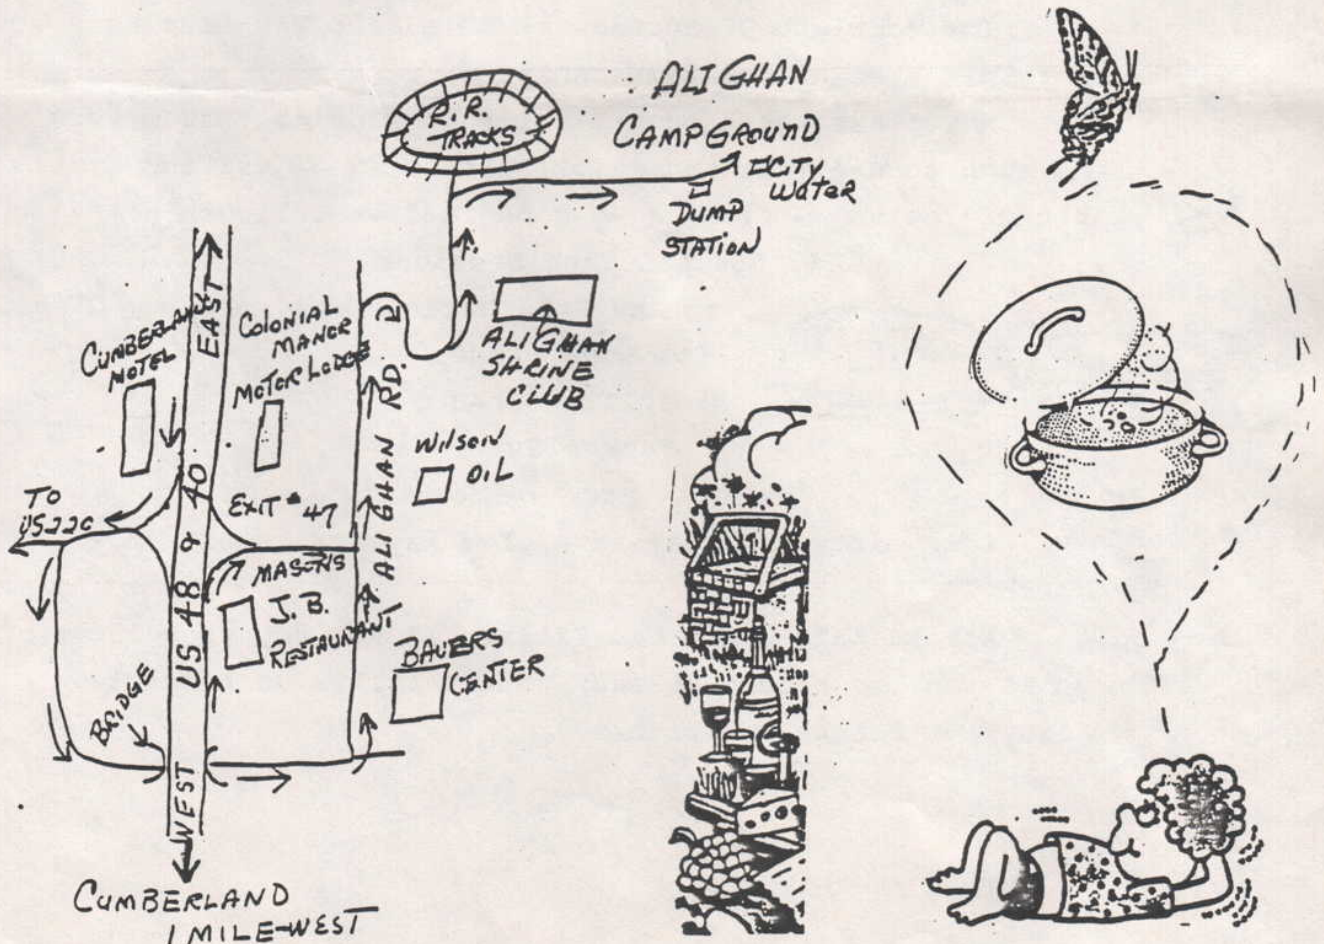 ALI GHAN
CAMPGROUND
R.R.
TRACKS
CITY
WATER
DUMP
STATION
ALI GHAN
SHRINE
CLUB
EAST
CUMBERLAND
MOTEL
COLONIAL
MANOR
MOTOR LODGE
ALI GHAN RD.
WILSON
OIL
TO
US 220
EXIT # 47
US 48 & 40
MASONS
J.B.
RESTAURANT
BAUERS
CENTER
BRIDGE
WEST
CUMBERLAND
1 MILE-WEST